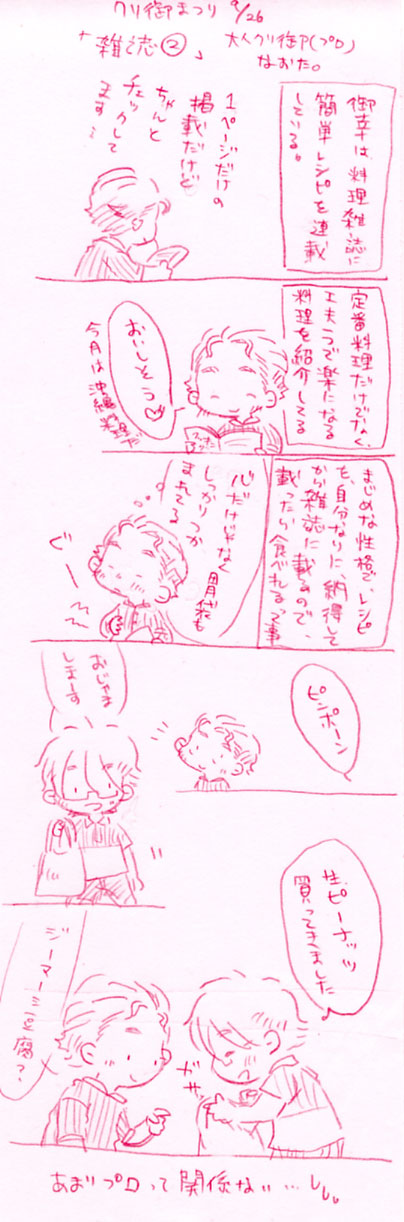 クリ御まつり 9/26
「雑誌②」
大人クリ御ア(プロ)
なおた。
御幸は、料理雑誌に
簡単レシピを連載
している。
1ページだけの
掲載だけど
ちゃんと
チェックして
ます…
定番料理だけでなく、
工夫1つで楽になる
料理を紹介してる
おいしそう♡
今月は沖縄料理
まじめな性格で、レシピ
を、自分なりに、納得して
から雑誌に載るので、
載ったら食べれるって事
心だけじゃなく
胃袋も
しっかりつか
まれてる
ぐ〜
ピンポーン
おじゃま
しまーす
生ピーナッツ
買ってきました
ジーマーミ豆腐?
ガサ
あまりプロって関係ない…